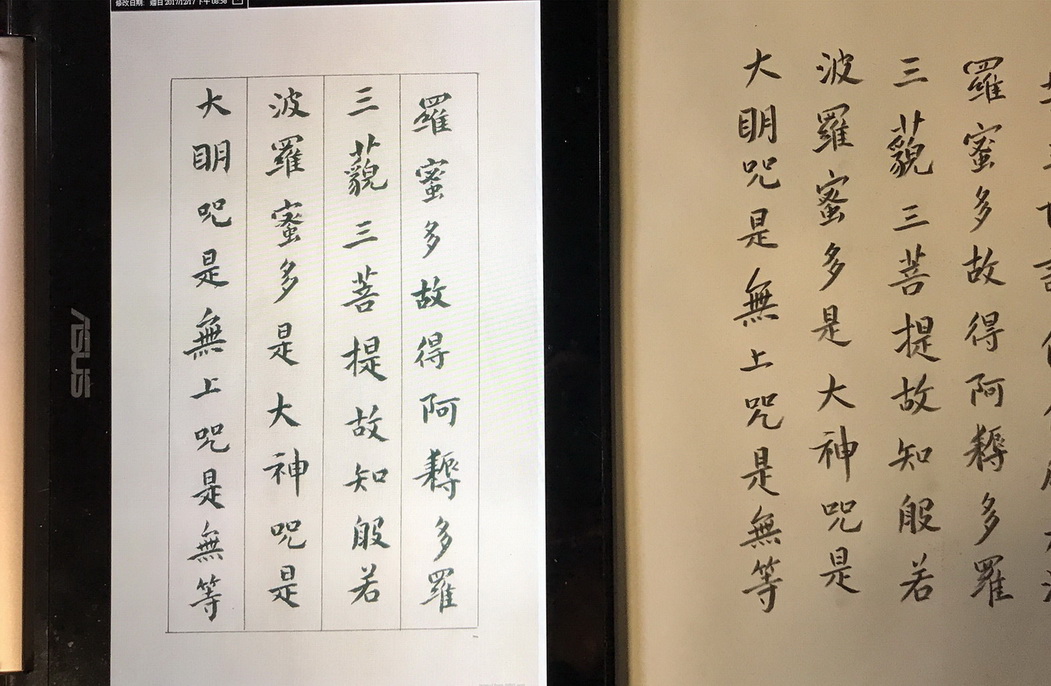 修改日期: 週日 2017/12/17 下午 08:56
ASUS
羅蜜多故得阿耨多羅
三藐三菩提故知般若
波羅蜜多是大神呪是
大明呪是無上呪是無等
羅蜜多故得阿耨多羅
三藐三菩提故知般若
波羅蜜多是大神呪是
大明呪是無上呪是無等